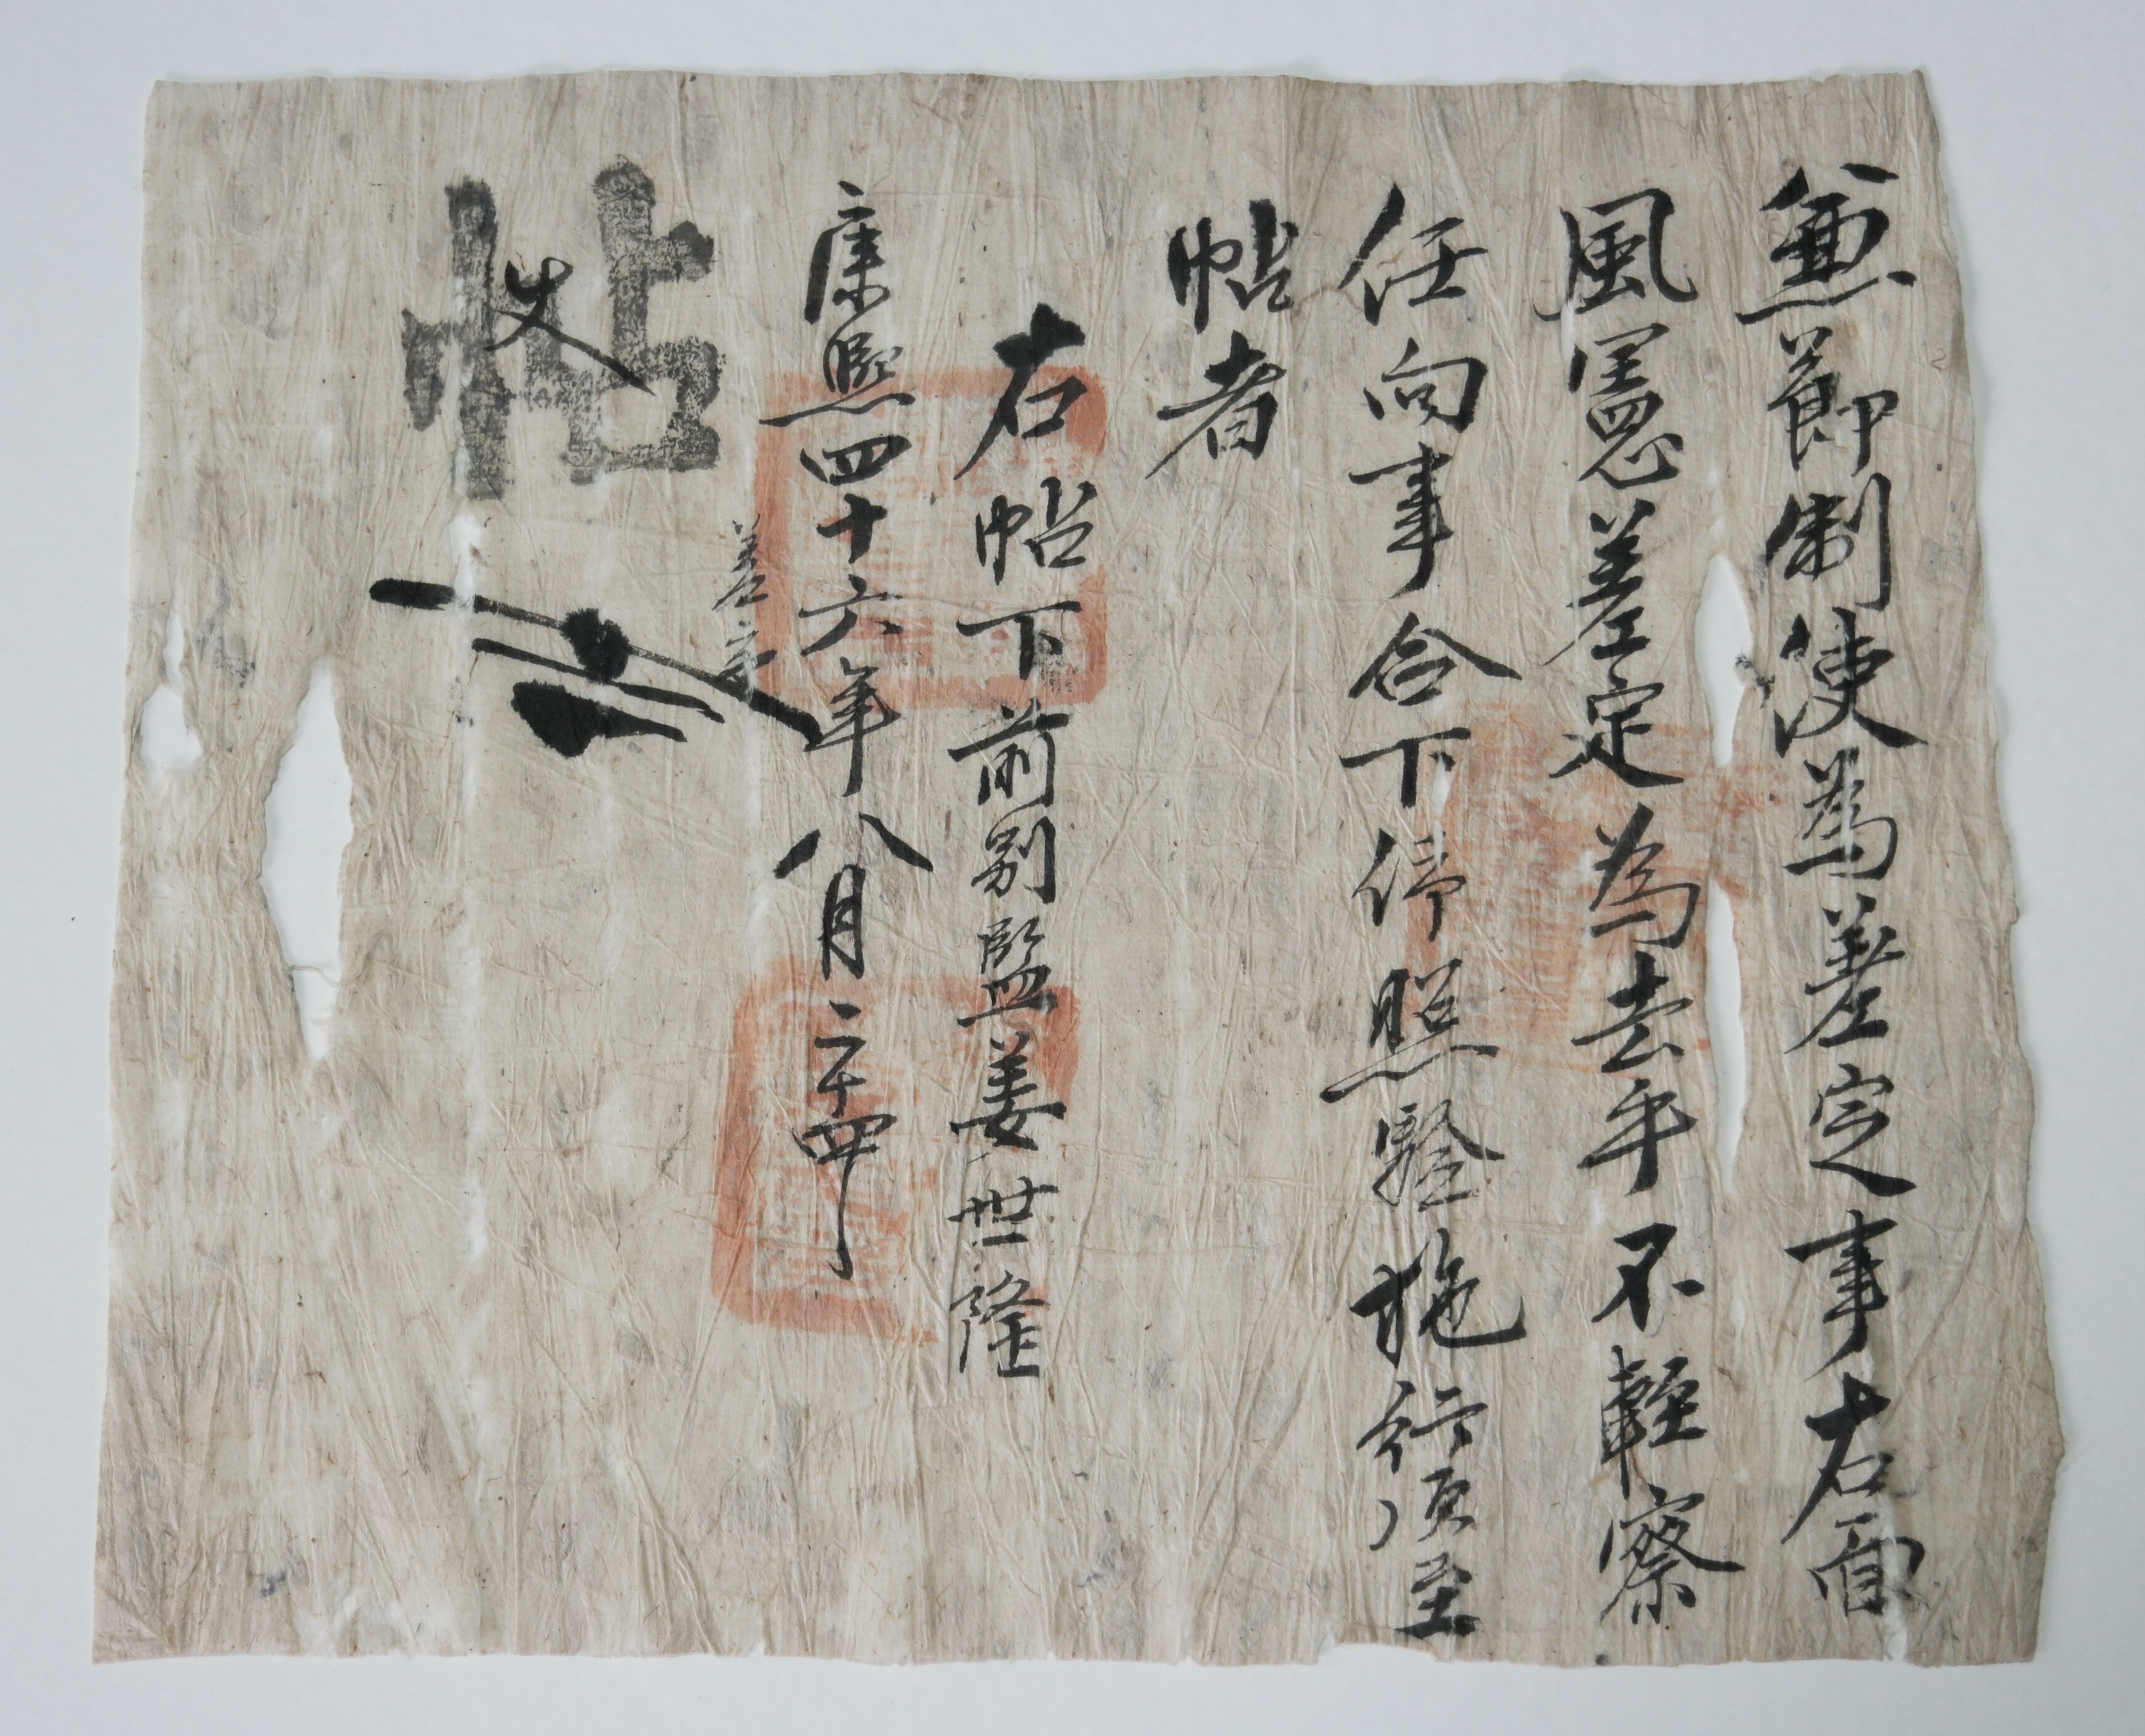 兼節制使爲差定事右面
風憲差定爲去乎不輕察
任向事合下仰照驗施行須至
帖者
右帖下前別監姜世隆
康熙四十六年八月二十四
差定
帖